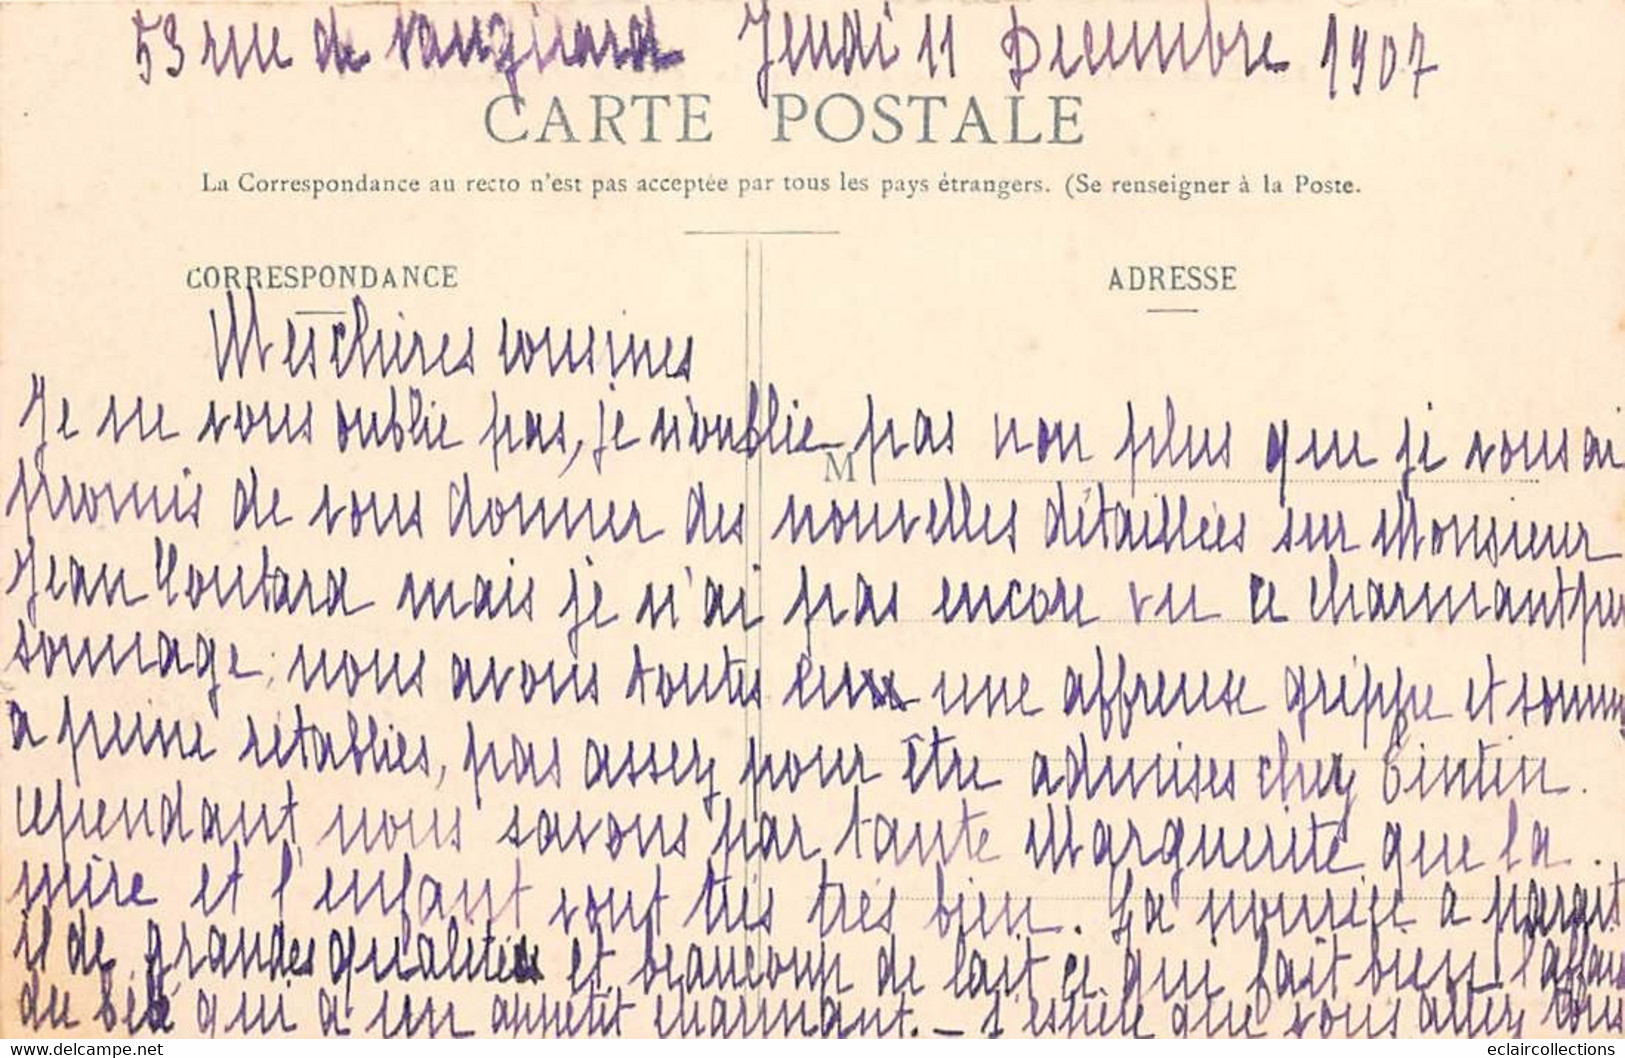 53 rue de Vaugirard Jeudi 11 Decembre 1907
CARTE POSTALE
La Correspondance au recto n'est pas acceptée par tous les pays étrangers. (Se renseigner à la Poste.
CORRESPONDANCE
ADRESSE
Mes chères cousines
Je ne vous oublie pas, je n'oublie pas non plus que je vous ai
M
promis de vous donner des nouvelles détaillées sur Monsieur
Jean Coutard mais je n'ai pas encore vu ce charmant per
sonnage, nous avons toutes eu une affreuse grippe et somm
a peine rétablies, pas assez pour être admises chez Tintin.
cependant nous savons par tante Marguerite que la
mère et l'enfant vont très très bien. La nourrice a parait
il de grandes qualités et beaucoup de lait ce qui fait bien l'affaire
du bébé qui a un appétit charmant. - J'espère que vous allez tous
eclaircollections